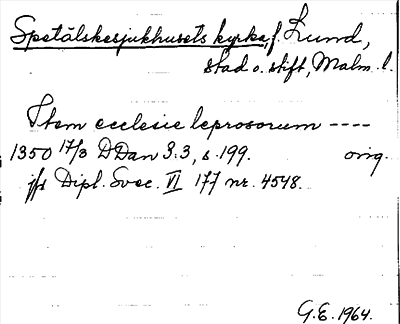 Spetälskesjukhusets kyrka, f. Lund,
stad o. stift, Malm. l.
Item ecclesie leprosorum ----
1350 17/3 DDan 3:3, s. 199. orig.
jfr Dipl. Svec. VI 177 nr. 4548.
G.E. 1964.